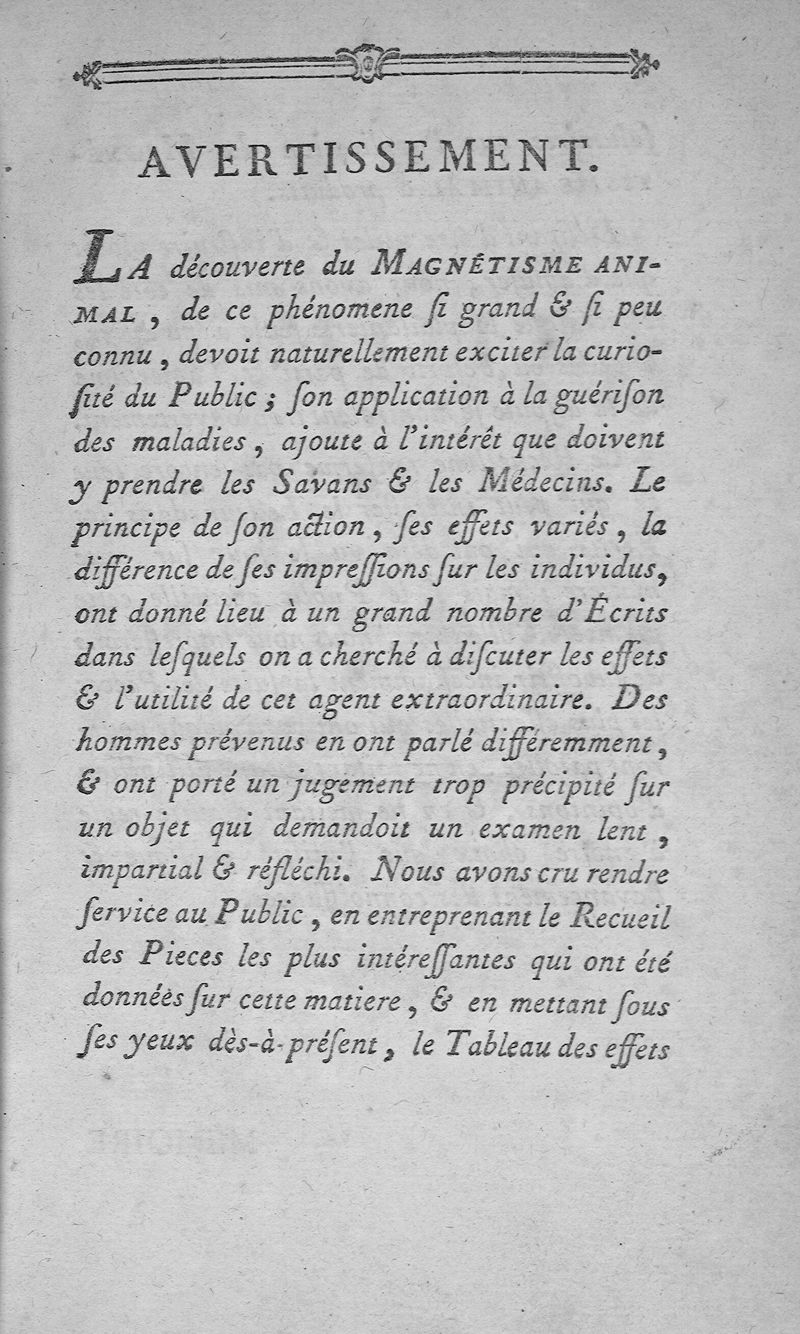 AVERTISSEMENT.
LA découverte du MAGNÉTISME ANI-
MAL, de ce phénomene ſi grand & ſi peu
connu, devoit naturellement exciter la curio-
ſité du Public ; ſon application à la guériſon
des maladies, ajoute à l'intérêt que doivent
y prendre les Savans & les Médecins. Le
principe de ſon action, ſes effets variés, la
différence de ſes impreſſions ſur les individus,
ont donné lieu à un grand nombre d'Écrits
dans leſquels on a cherché à diſcuter les effets
& l'utilité de cet agent extraordinaire. Des
hommes prévenus en ont parlé différemment,
& ont porté un jugement trop précipité ſur
un objet qui demandoit un examen lent,
impartial & réfléchi. Nous avons cru rendre
ſervice au Public, en entreprenant le Recueil
des Pieces les plus intéreſſantes qui ont été
données ſur cette matiere, & en mettant ſous
ſes yeux dès-à-préſent, le Tableau des effets